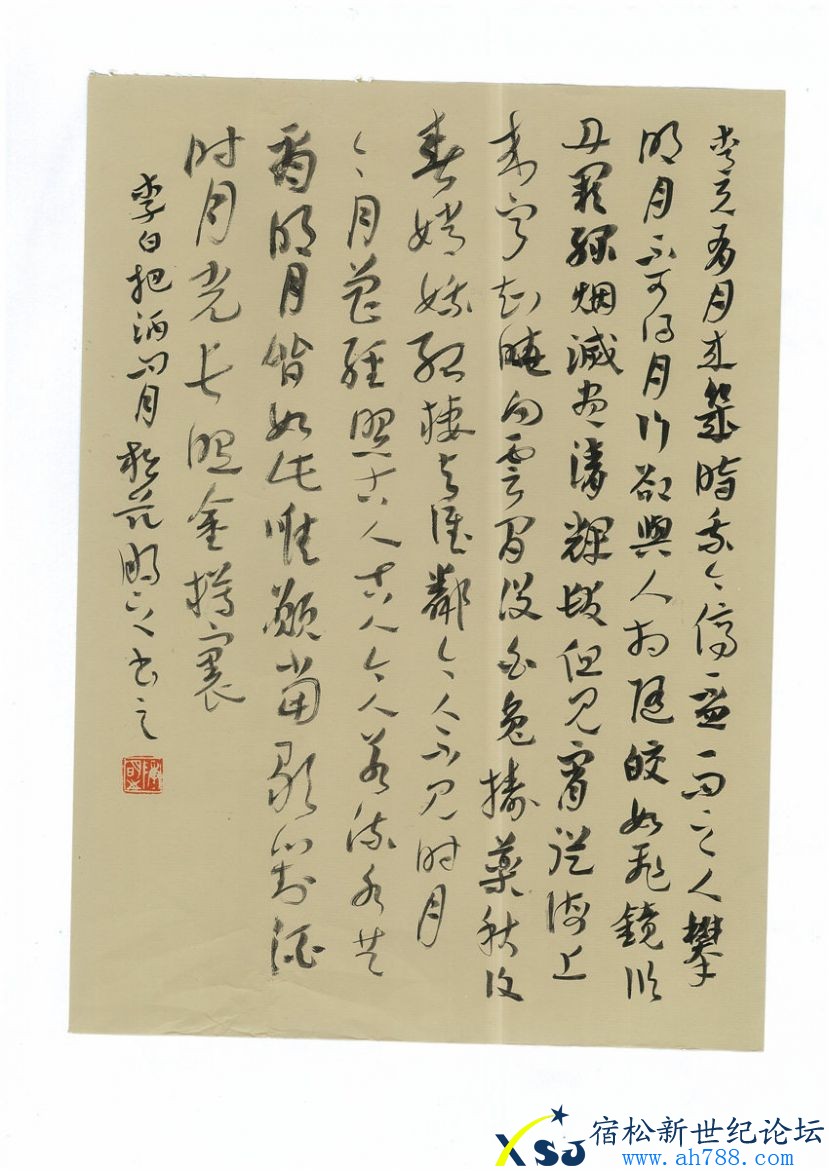 青天有月来幾時我今停盃一问之人攀
明月不可得月行卻與人相随皎如飞鏡临
丹阙绿烟滅尽清輝发但见宵从海上
来宁知曉向雲间没白兔擣藥秋復
春嫦娥孤棲与谁鄰今人不见时月
今月曾经照古人古人今人若流水共
看明月皆如此唯願當歌对酒
时月光长照金樽裏
李白把酒问月 书之
宿松新世纪论坛
XSJ www.ah788.com